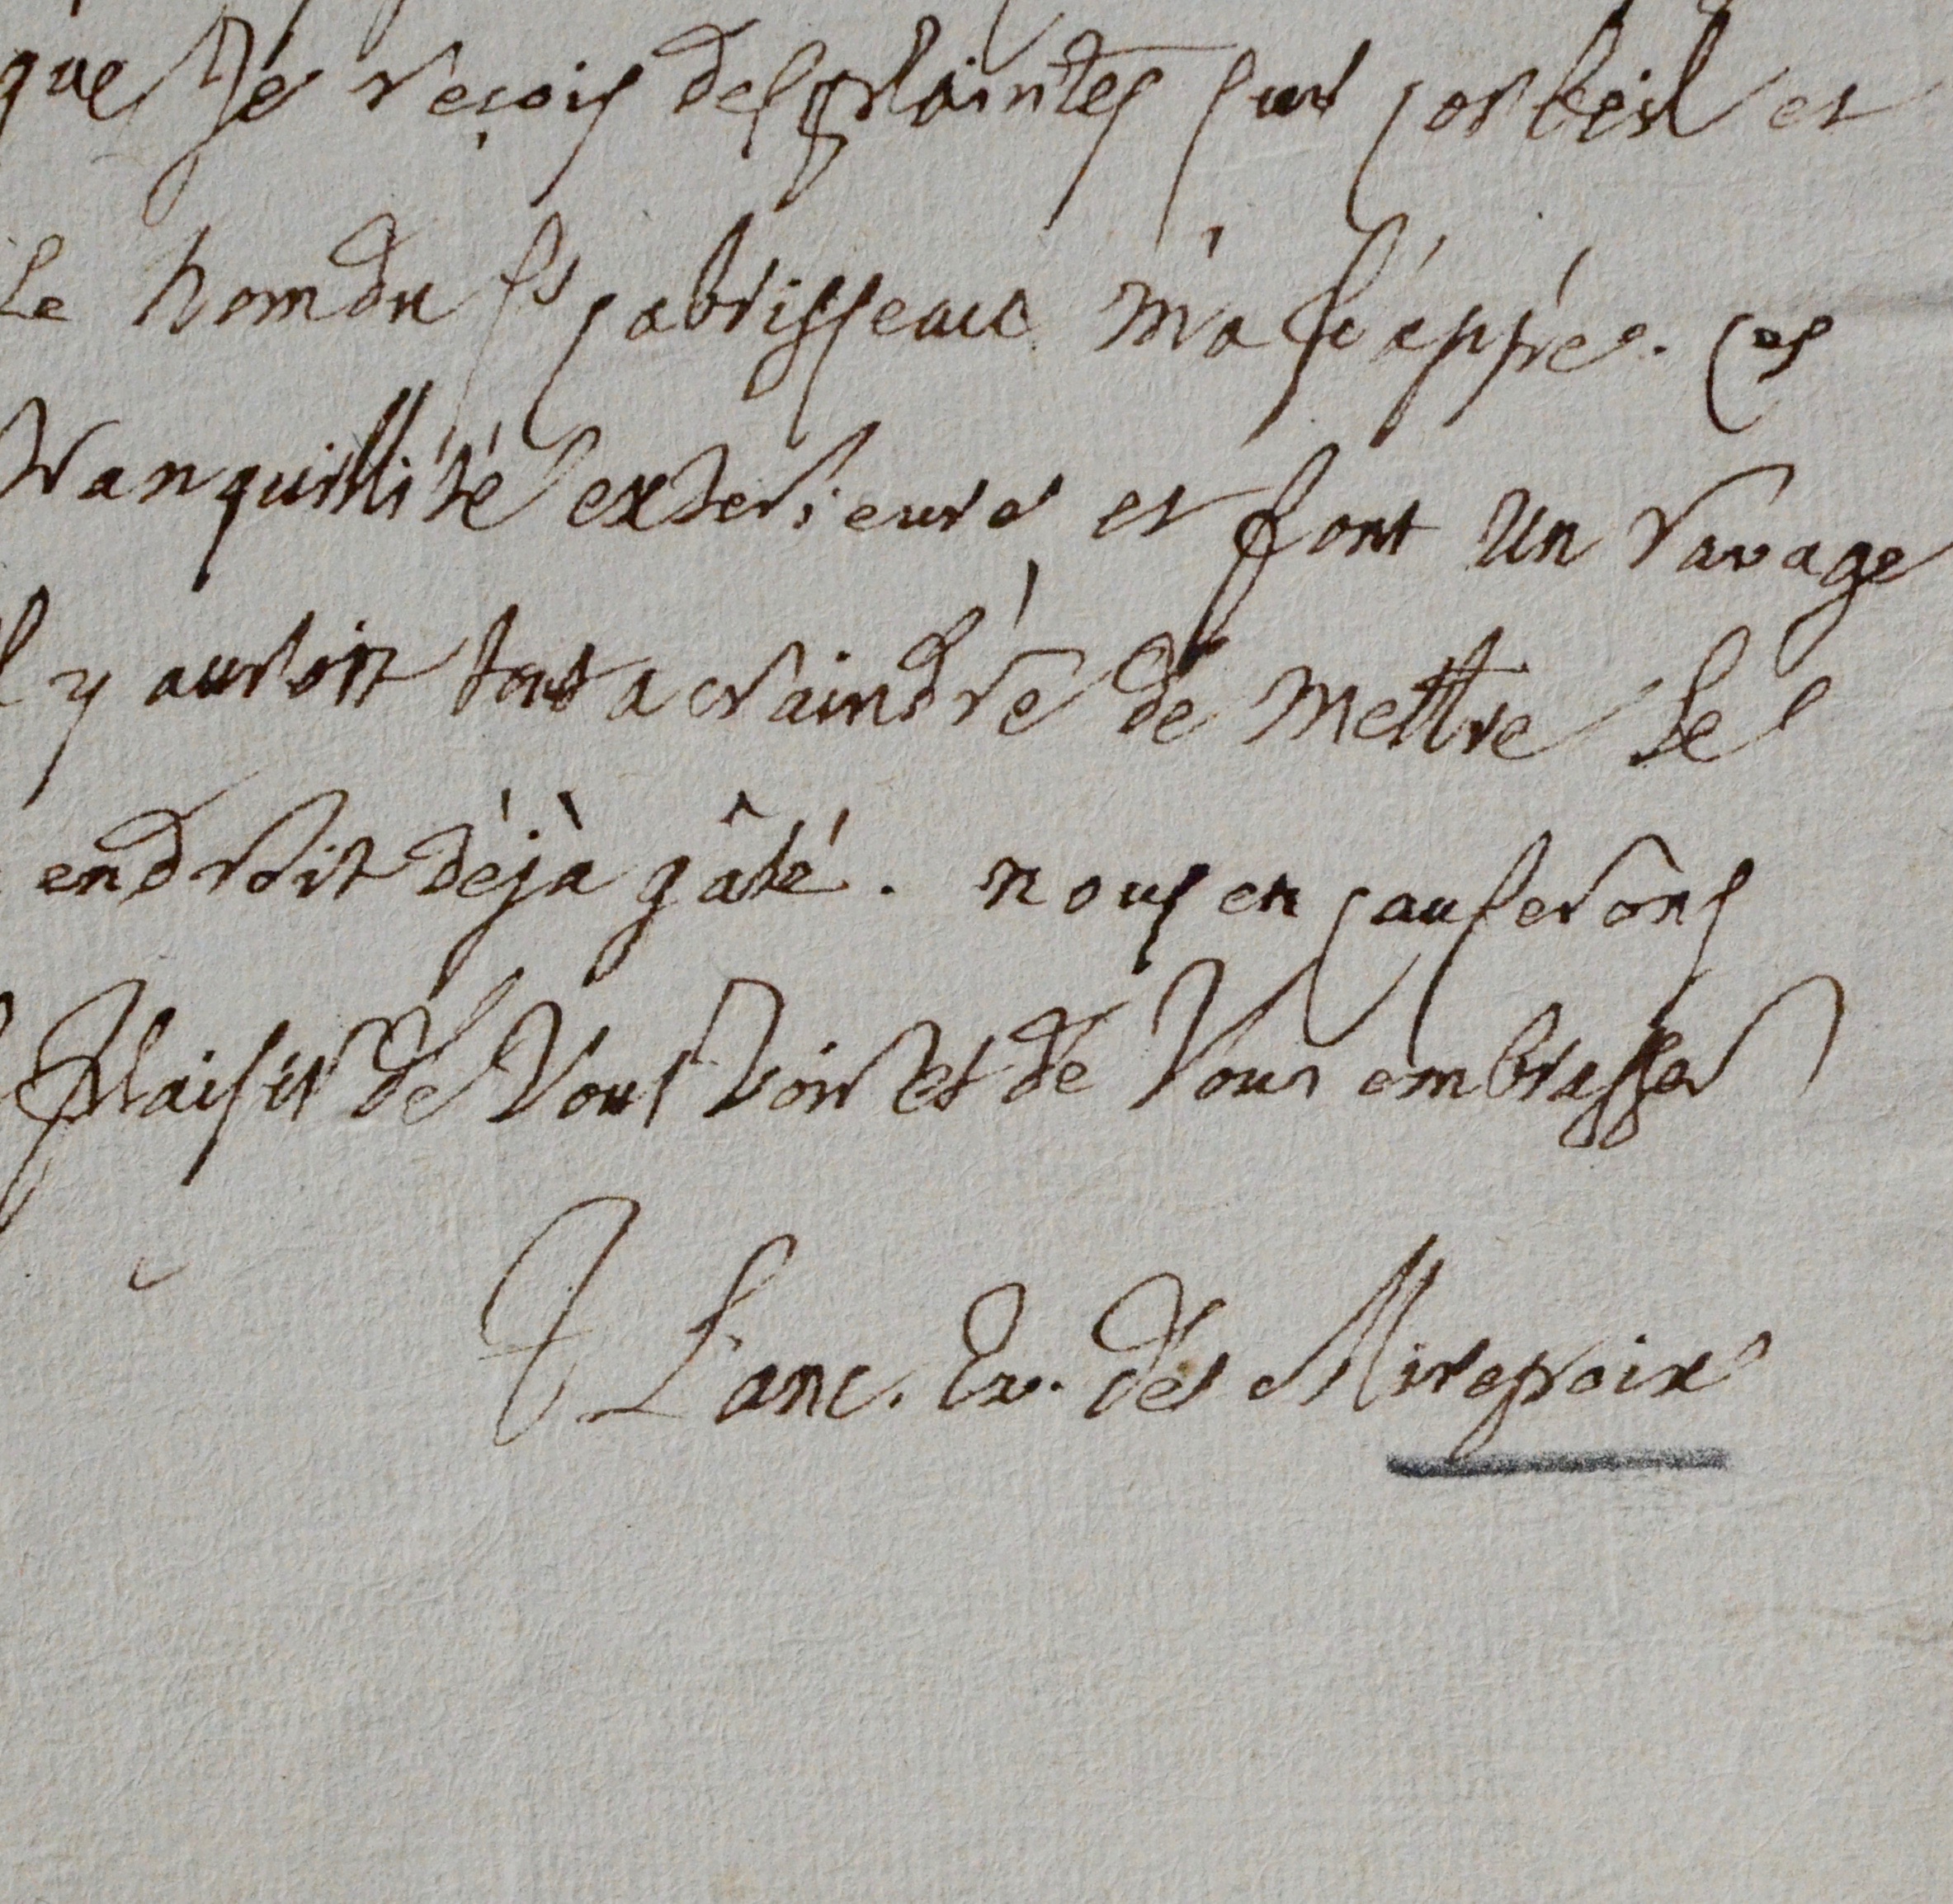 que Je reçois des plaintes sur corbeil et
le nom du Sr cabrisseau m'a frappée. Ces
tranquillité exterieure et font un ravage
il y auroit tout a craindre de mettre le
endroit déjà gâté. nous en causerons
plaisir de Vous voir et de Vous embrasser
† Lanc. Ev. de Mirepoix